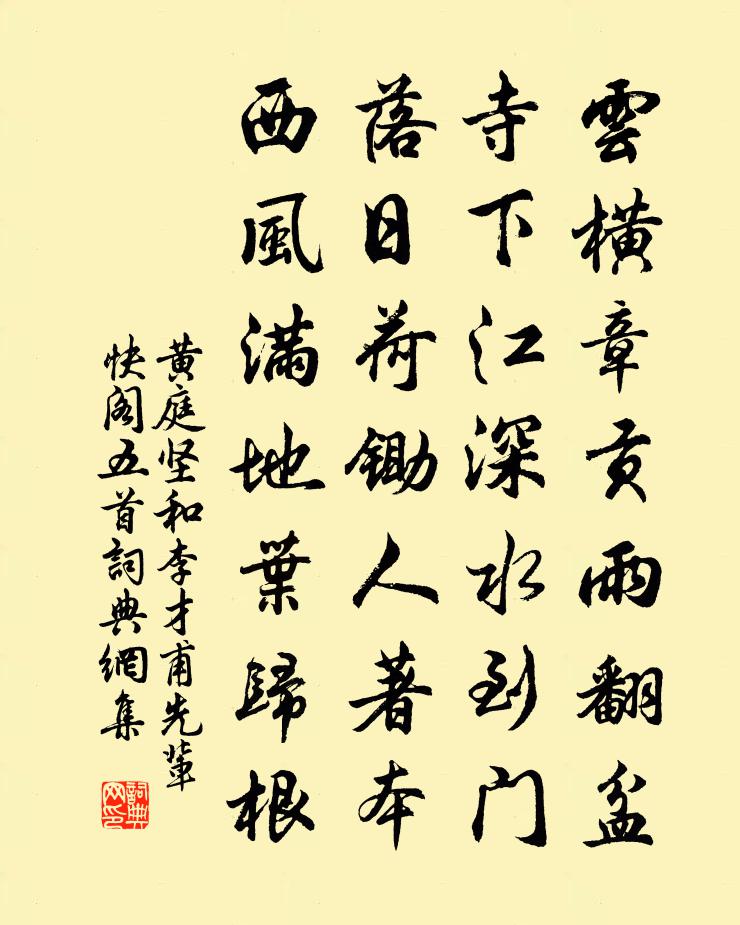 雲橫章貢雨翻盆
寺下江深水到門
落日荷鋤人著本
西風滿地葉歸根
黄庭坚和李才甫先輩
快阁五首詞典網集
詞典网印